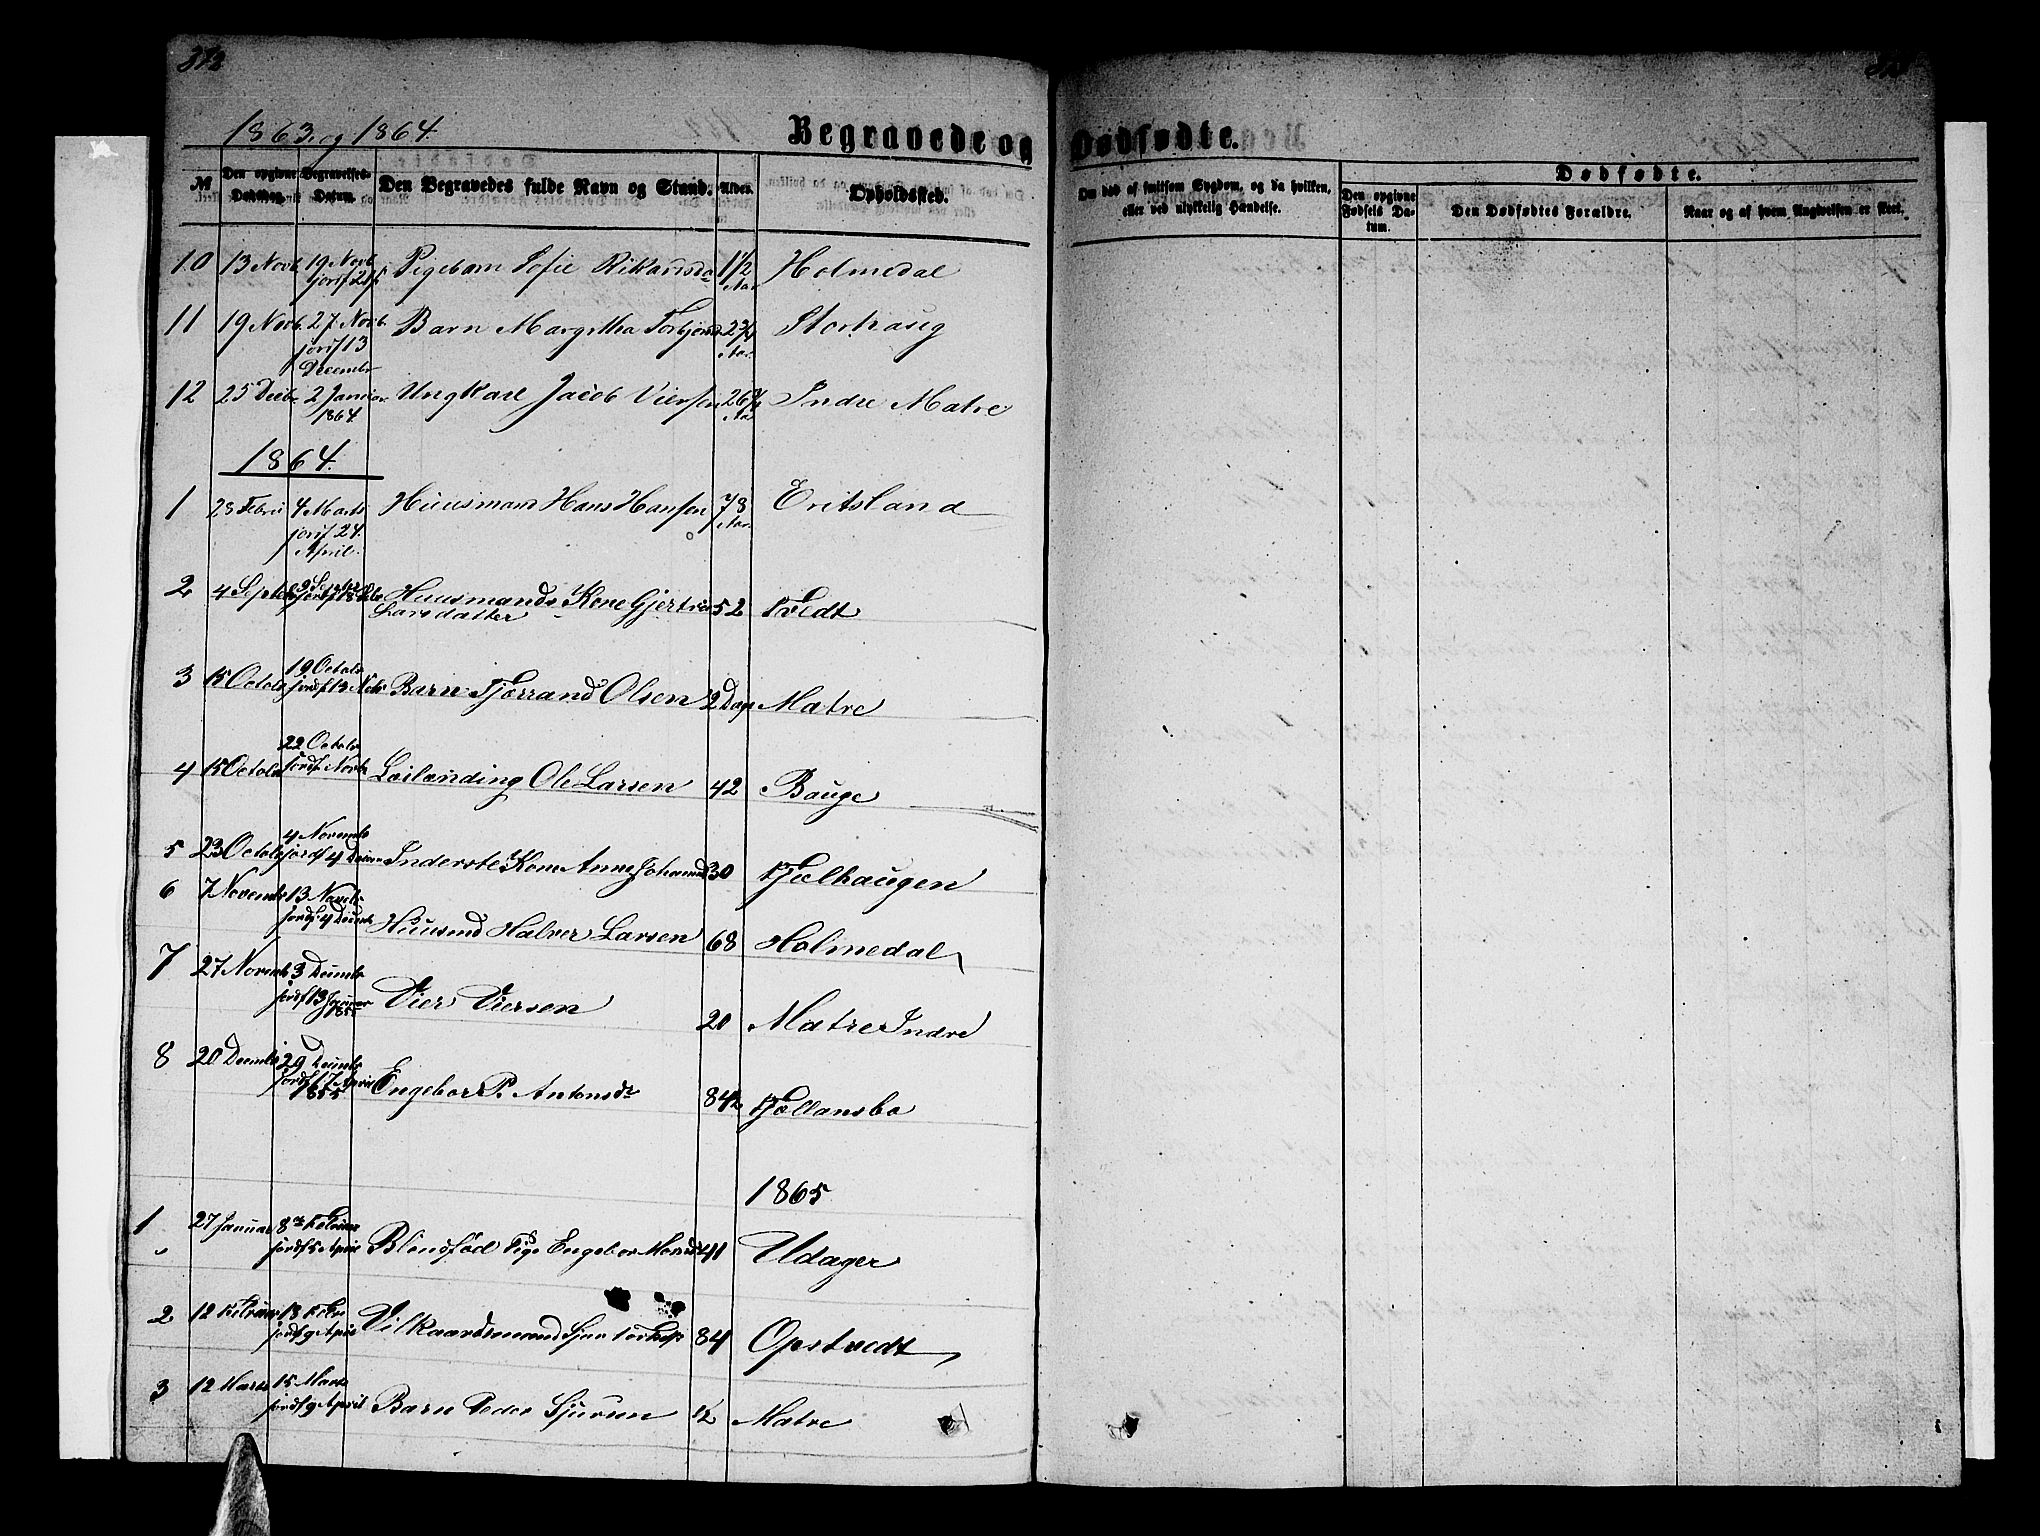 1863 og 1864.
Begravede og Dødfødte.
№ Den opgivne Dødsdag. Begravelses-Datum. Den Begravedes fulde Navn og Stand. Alder. Opholdssted.
Om død af smitsom Sygdom, og da hvilken, eller ved ulykkelig Hændelse.
Dødfødte.
Den opgivne Fødsels Datum. Den Dødfødtes Forældre. Naar og af hvem Angivelsen er skeet.
10 13 Novb. 19 Novb. Pigebarn Sofie Rikardsd 1 1/2 Aar Holmedal
11 19 Novb. 27 Novb. jordf 13 Decembr Barn Margrtha Aar. Stortraug
12 25 Decbr 2 Januar 1864. Ungkarl Jacob Viersen 26 Aar Indre Matre
1864.
1 4 Marts jordf 24. April. Huusmand Hans Hansen 78 Aar. Eritsland
2 4 Septbr Huusmands Kone Gjertru Larsdatter 52 Tvedt
3 15 Octob 19 Octobr jordf 13 Barn Tjerrand Olsen 2 Dage Matre
4 15 Octobr 22 Octobr jordf Novb Leilænding Ole Larsen 42 Bauge
5 23 Octob 4 Novembr jordf 4 Inderste Kone Anne Johannesd 30 Fjælhaugen
6 7 Novembr 13 Novebr jordf 4 Decmb Huusmd Halver Larsen 68 Holmedal
7 27 Novemb 3 Decembr jordf 13 Januar Vier Viersen 20 Matre Indre
8 20 Decembr 29 Decembr jordf 17 April Engebor P. Antonsdr 84 1/2 Fjellansbø
1865
1 27 Januar 8de Februar jordf 5 April Blindfød Pige Engebor 41 Udager
2 12 Februar 18 Febr jordf 9 April Vilkaarsmand 84 Opstvedt
3 12 Marts 15 Marts jordf 9 April Barn Peder Sjursen 1/2 Matre